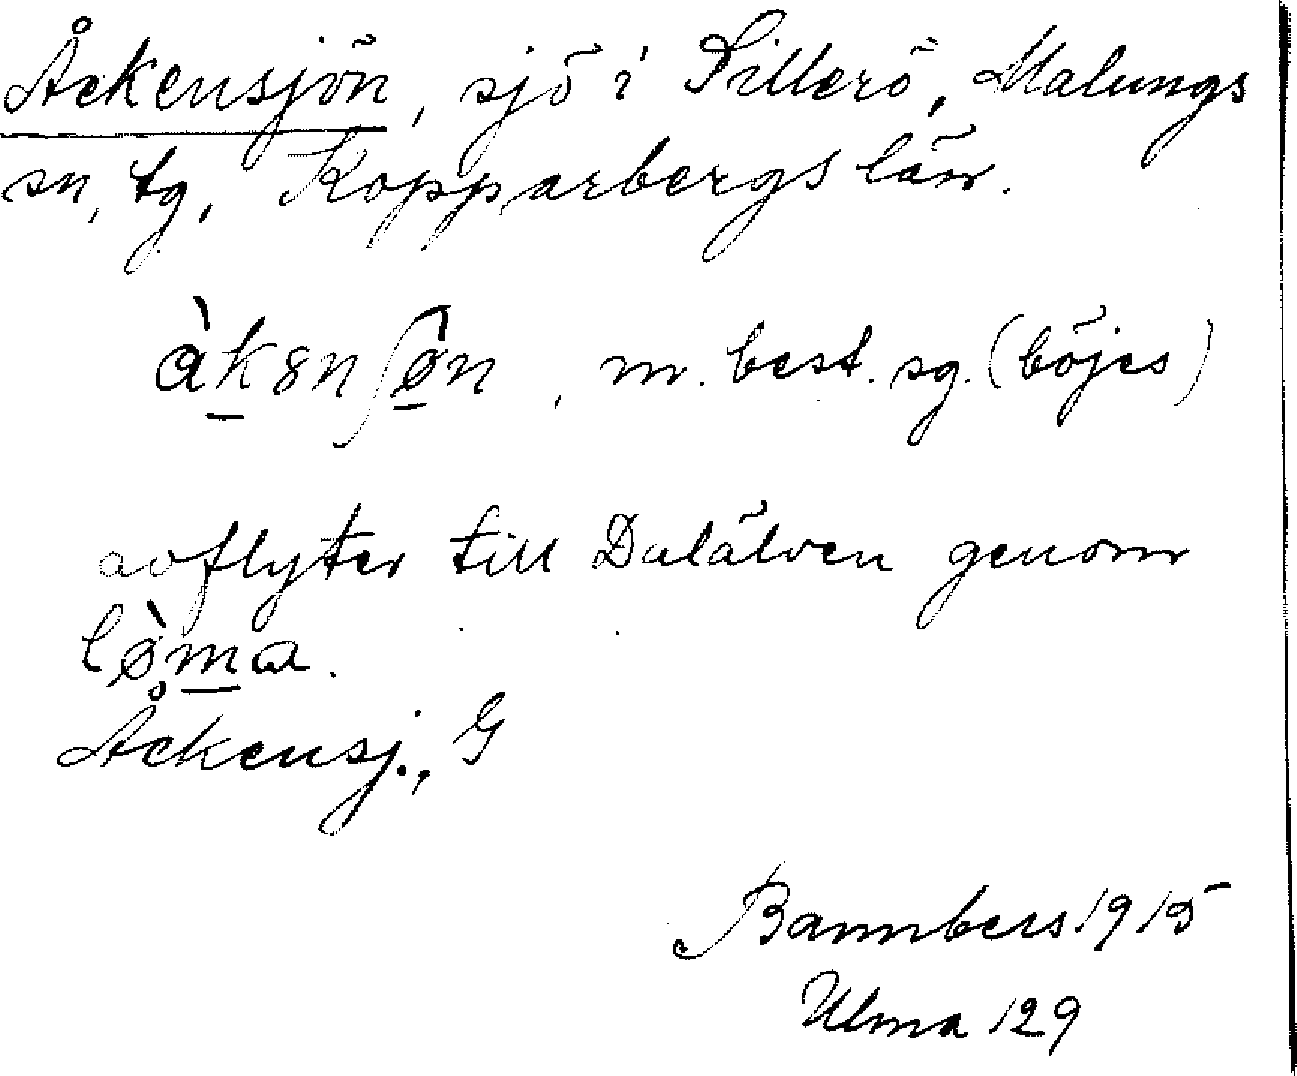 Åckensjön, sjö i Tillerö, Malungs
sn, tg, Kopparbergs län.
àksnʃøn, m. best. sg. (böjes)
avflyter till Dalälven genom
lø̀ma.
Åckensj., G
Bannbers 1915
Ulma 129